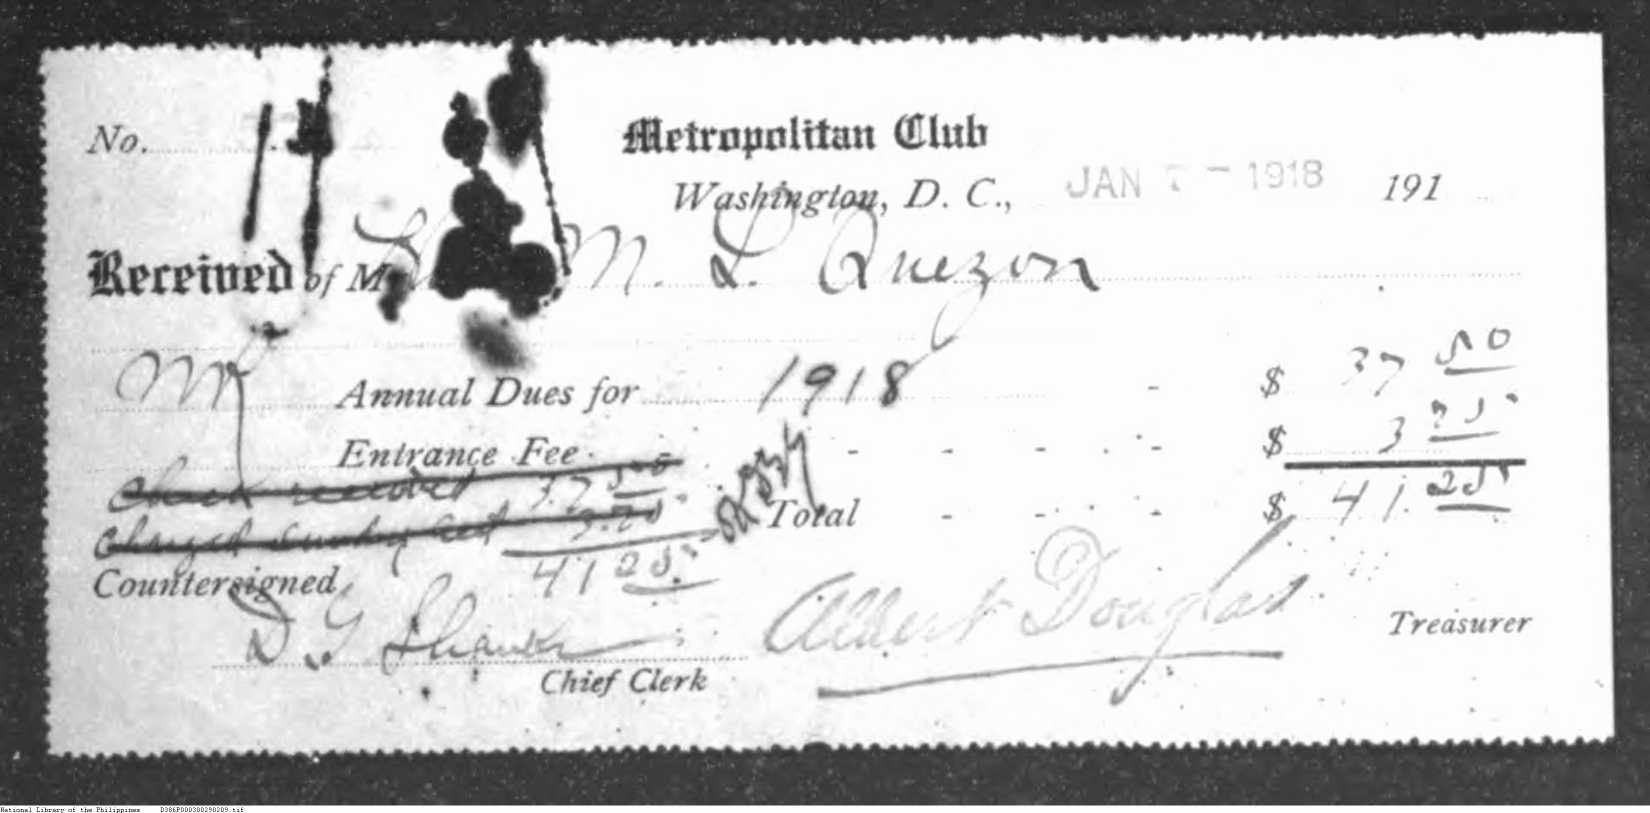 No.
Metropolitan Club
Washington, D. C., JAN 7 - 1918 191
Received of M M. L. Quezon
Annual Dues for 1918 - $ 37 50
Entrance Fee - - - - - - $ 3 75
Check received 37 50
Charged Sundry Act 3.75
Total - - - - $ 41.25
41 25
Countersigned
D. G. Albert Douglas Treasurer
Chief Clerk
National Library of the Philippines D386P000300290209.tif